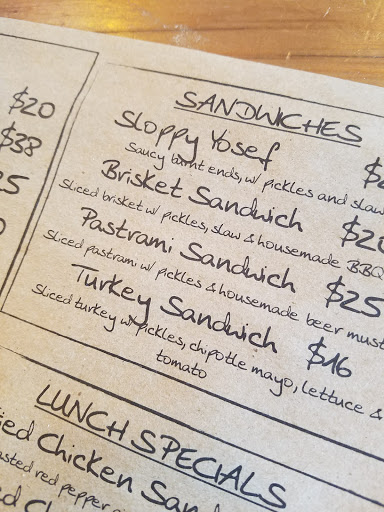 $20
$38
SANDWICHES
Sloppy Yosef
Saucy burnt ends, w/ pickles and slaw
Brisket Sandwich
Sliced brisket w/ pickles, slaw & housemade BBQ
Pastrami Sandwich $25
Sliced pastrami w/ pickles & housemade beer must
Turkey Sandwich $16
Sliced turkey w/ pickles, chipotle mayo, lettuce &
tomato
LUNCH SPECIALS
ied Chicken San
asted red pepper